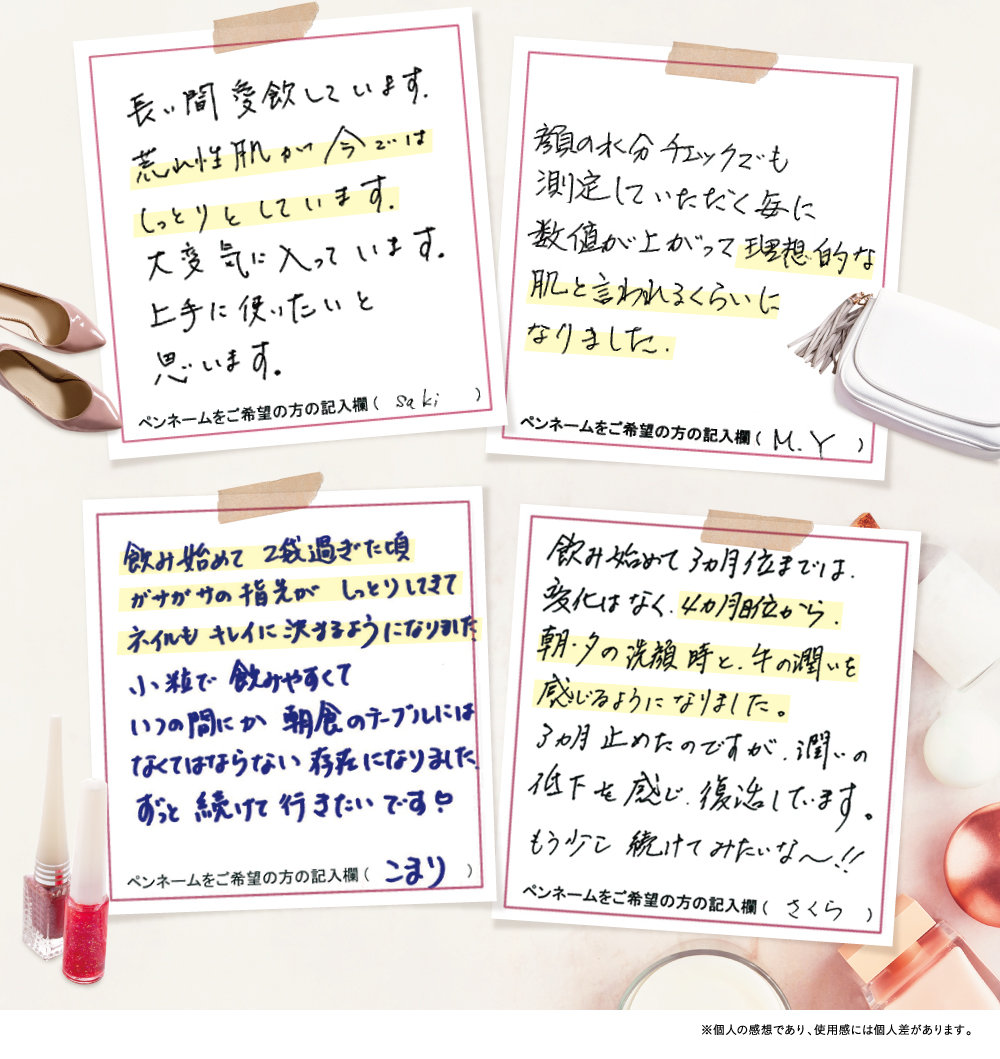 長い間愛飲しています.
荒れ性肌が今では
しっとりとしています.
大変気に入っています.
上手に使いたいと
思います。
ペンネームをご希望の方の記入欄 ( saki )
顔の水分チェックでも
測定していただく毎に
数値が上がって理想的な
肌と言われるくらいに
なりました.
ペンネームをご希望の方の記入欄 ( M.Y )
飲み始めて 2袋過ぎた頃
ガサガサの指先が しっとりしてきて
ネイルも キレイに決まるようになりました
小粒で 飲みやすくて
いつの間にか 朝食のテーブルには
なくてはならない 存在になりました.
ずっと 続けて行きたいです♡
ペンネームをご希望の方の記入欄 ( こまり )
飲み始めて 3ヵ月位までは.
変化はなく. 4ヵ月目位から.
朝・夕の洗顔時と.手の潤いを
感じるようになりました。
3ヵ月止めたのですが.潤いの
低下を感じ.復活しています。
もう少し続けてみたいな〜!!
ペンネームをご希望の方の記入欄 ( さくら )
※個人の感想であり、使用感には個人差があります。